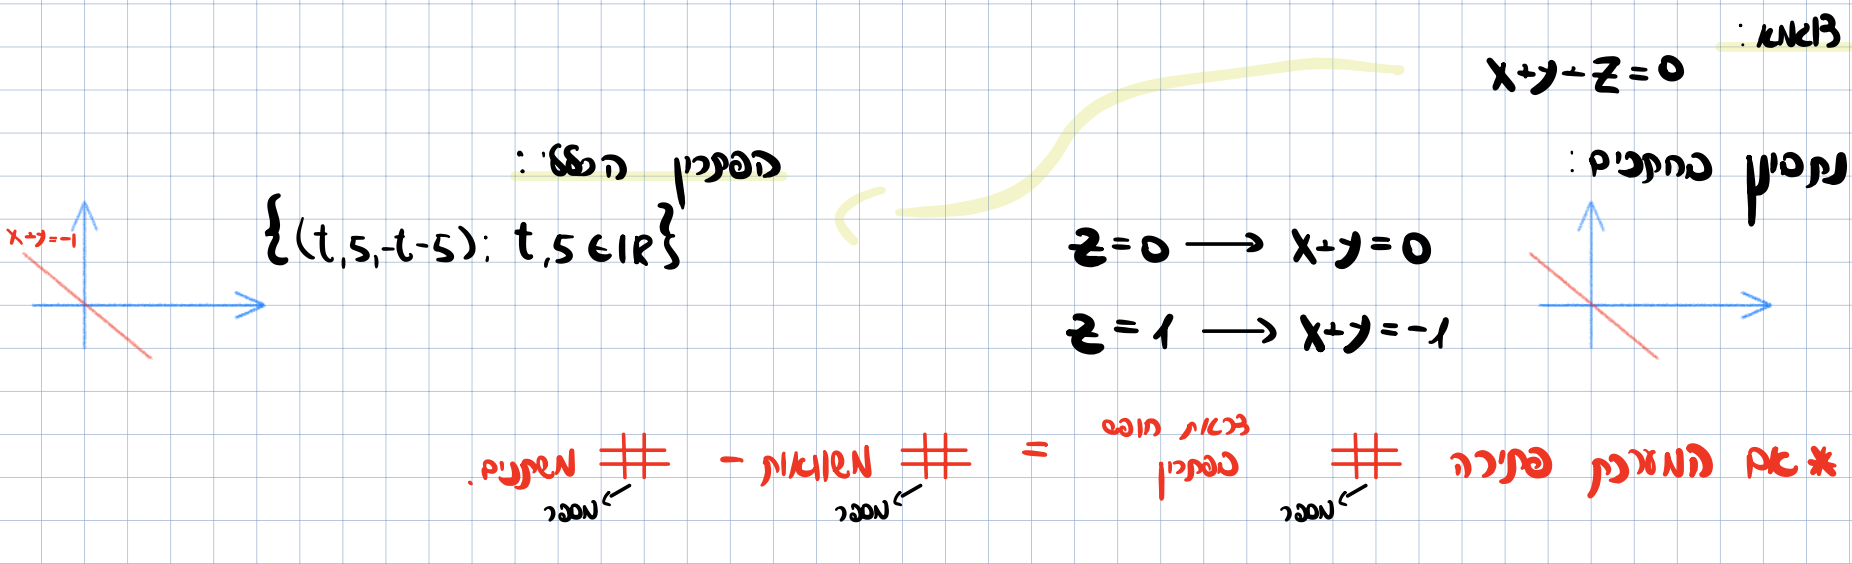 דוגמא:
x+y+z=0
נתבונן בחתכים:
z=0 → x+y=0
z=1 → x+y=-1
הפתרון הכללי:
{(t,s,-t-s): t,s∈ℝ}
x+y=-1
* אם המערכת פתירה # דרגות חופש בפתרון = # משוואות - # משתנים.
מספר מספר מספר